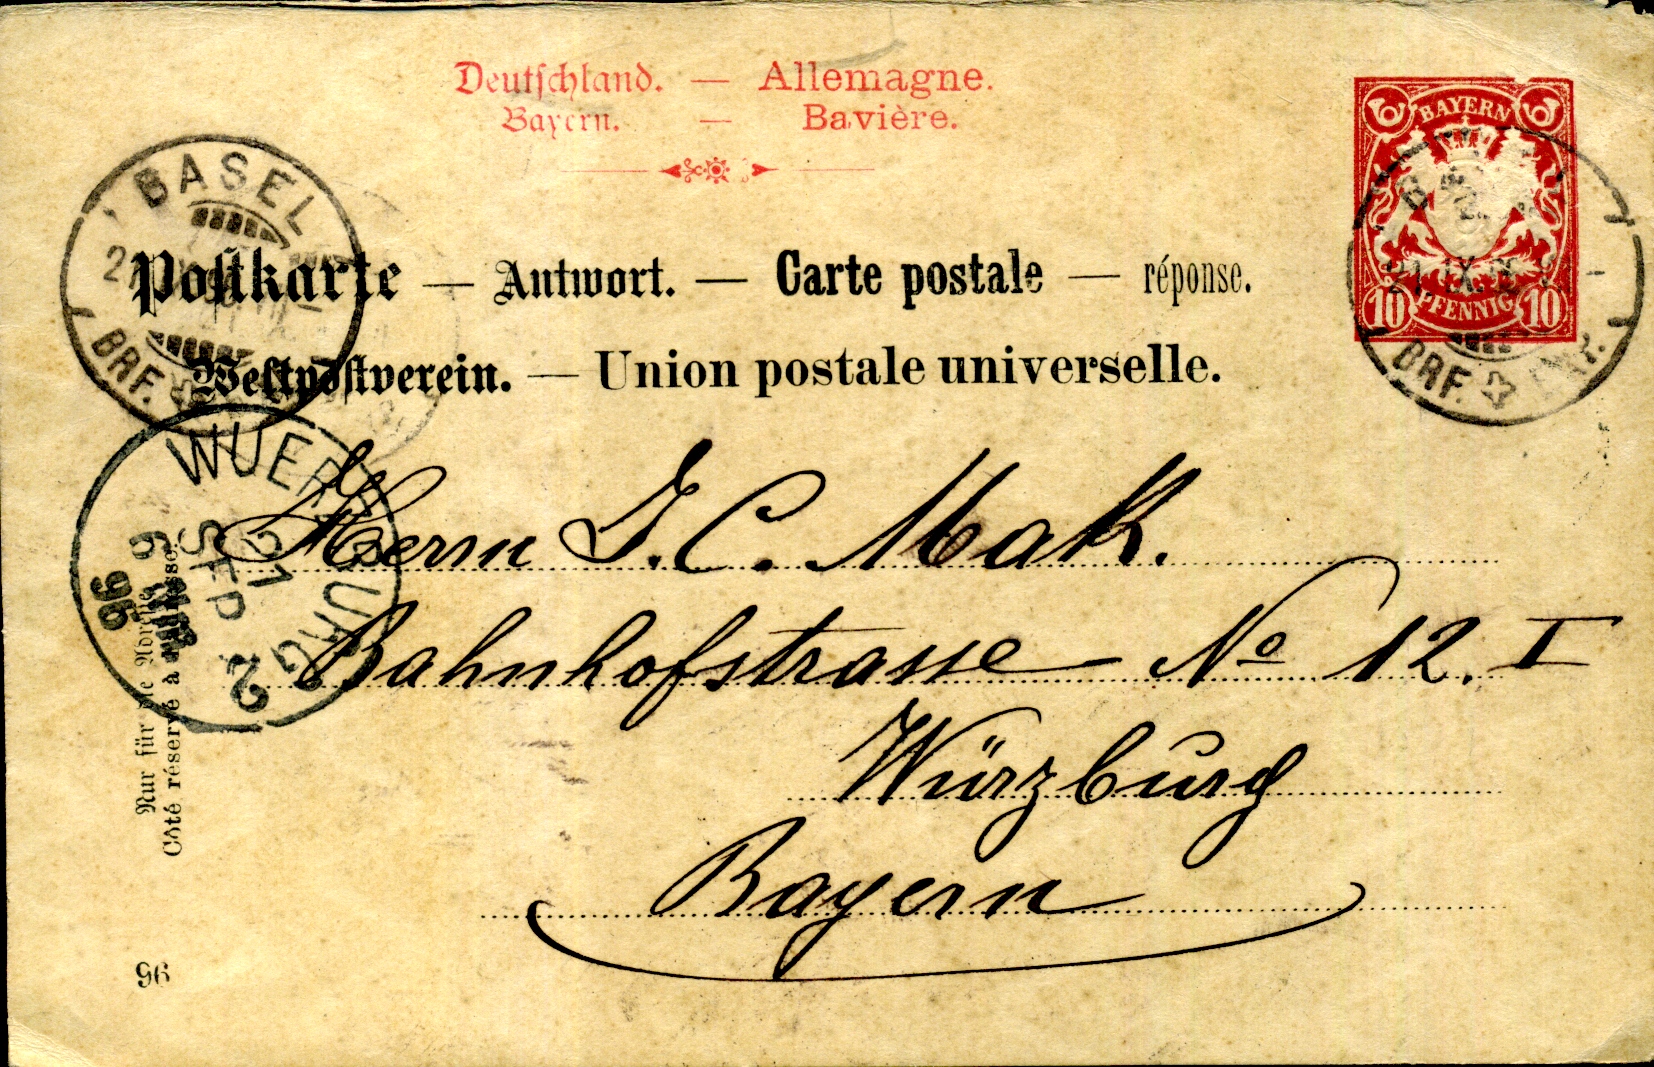 Deutschland. — Allemagne.
Bayern. — Bavière.
BAYERN
10 PFENNIG 10
BASEL
BRF.
21.IX.
BRF.
Postkarte — Antwort. — Carte postale — réponse.
Weltpostverein. — Union postale universelle.
WUERZBURG
21
SEP
96
2
Herrn J. C. Mak.
Bahnhofstrasse No 12. I
Würzburg
Bayern
Nur für die Adresse
Côté réservé à
96